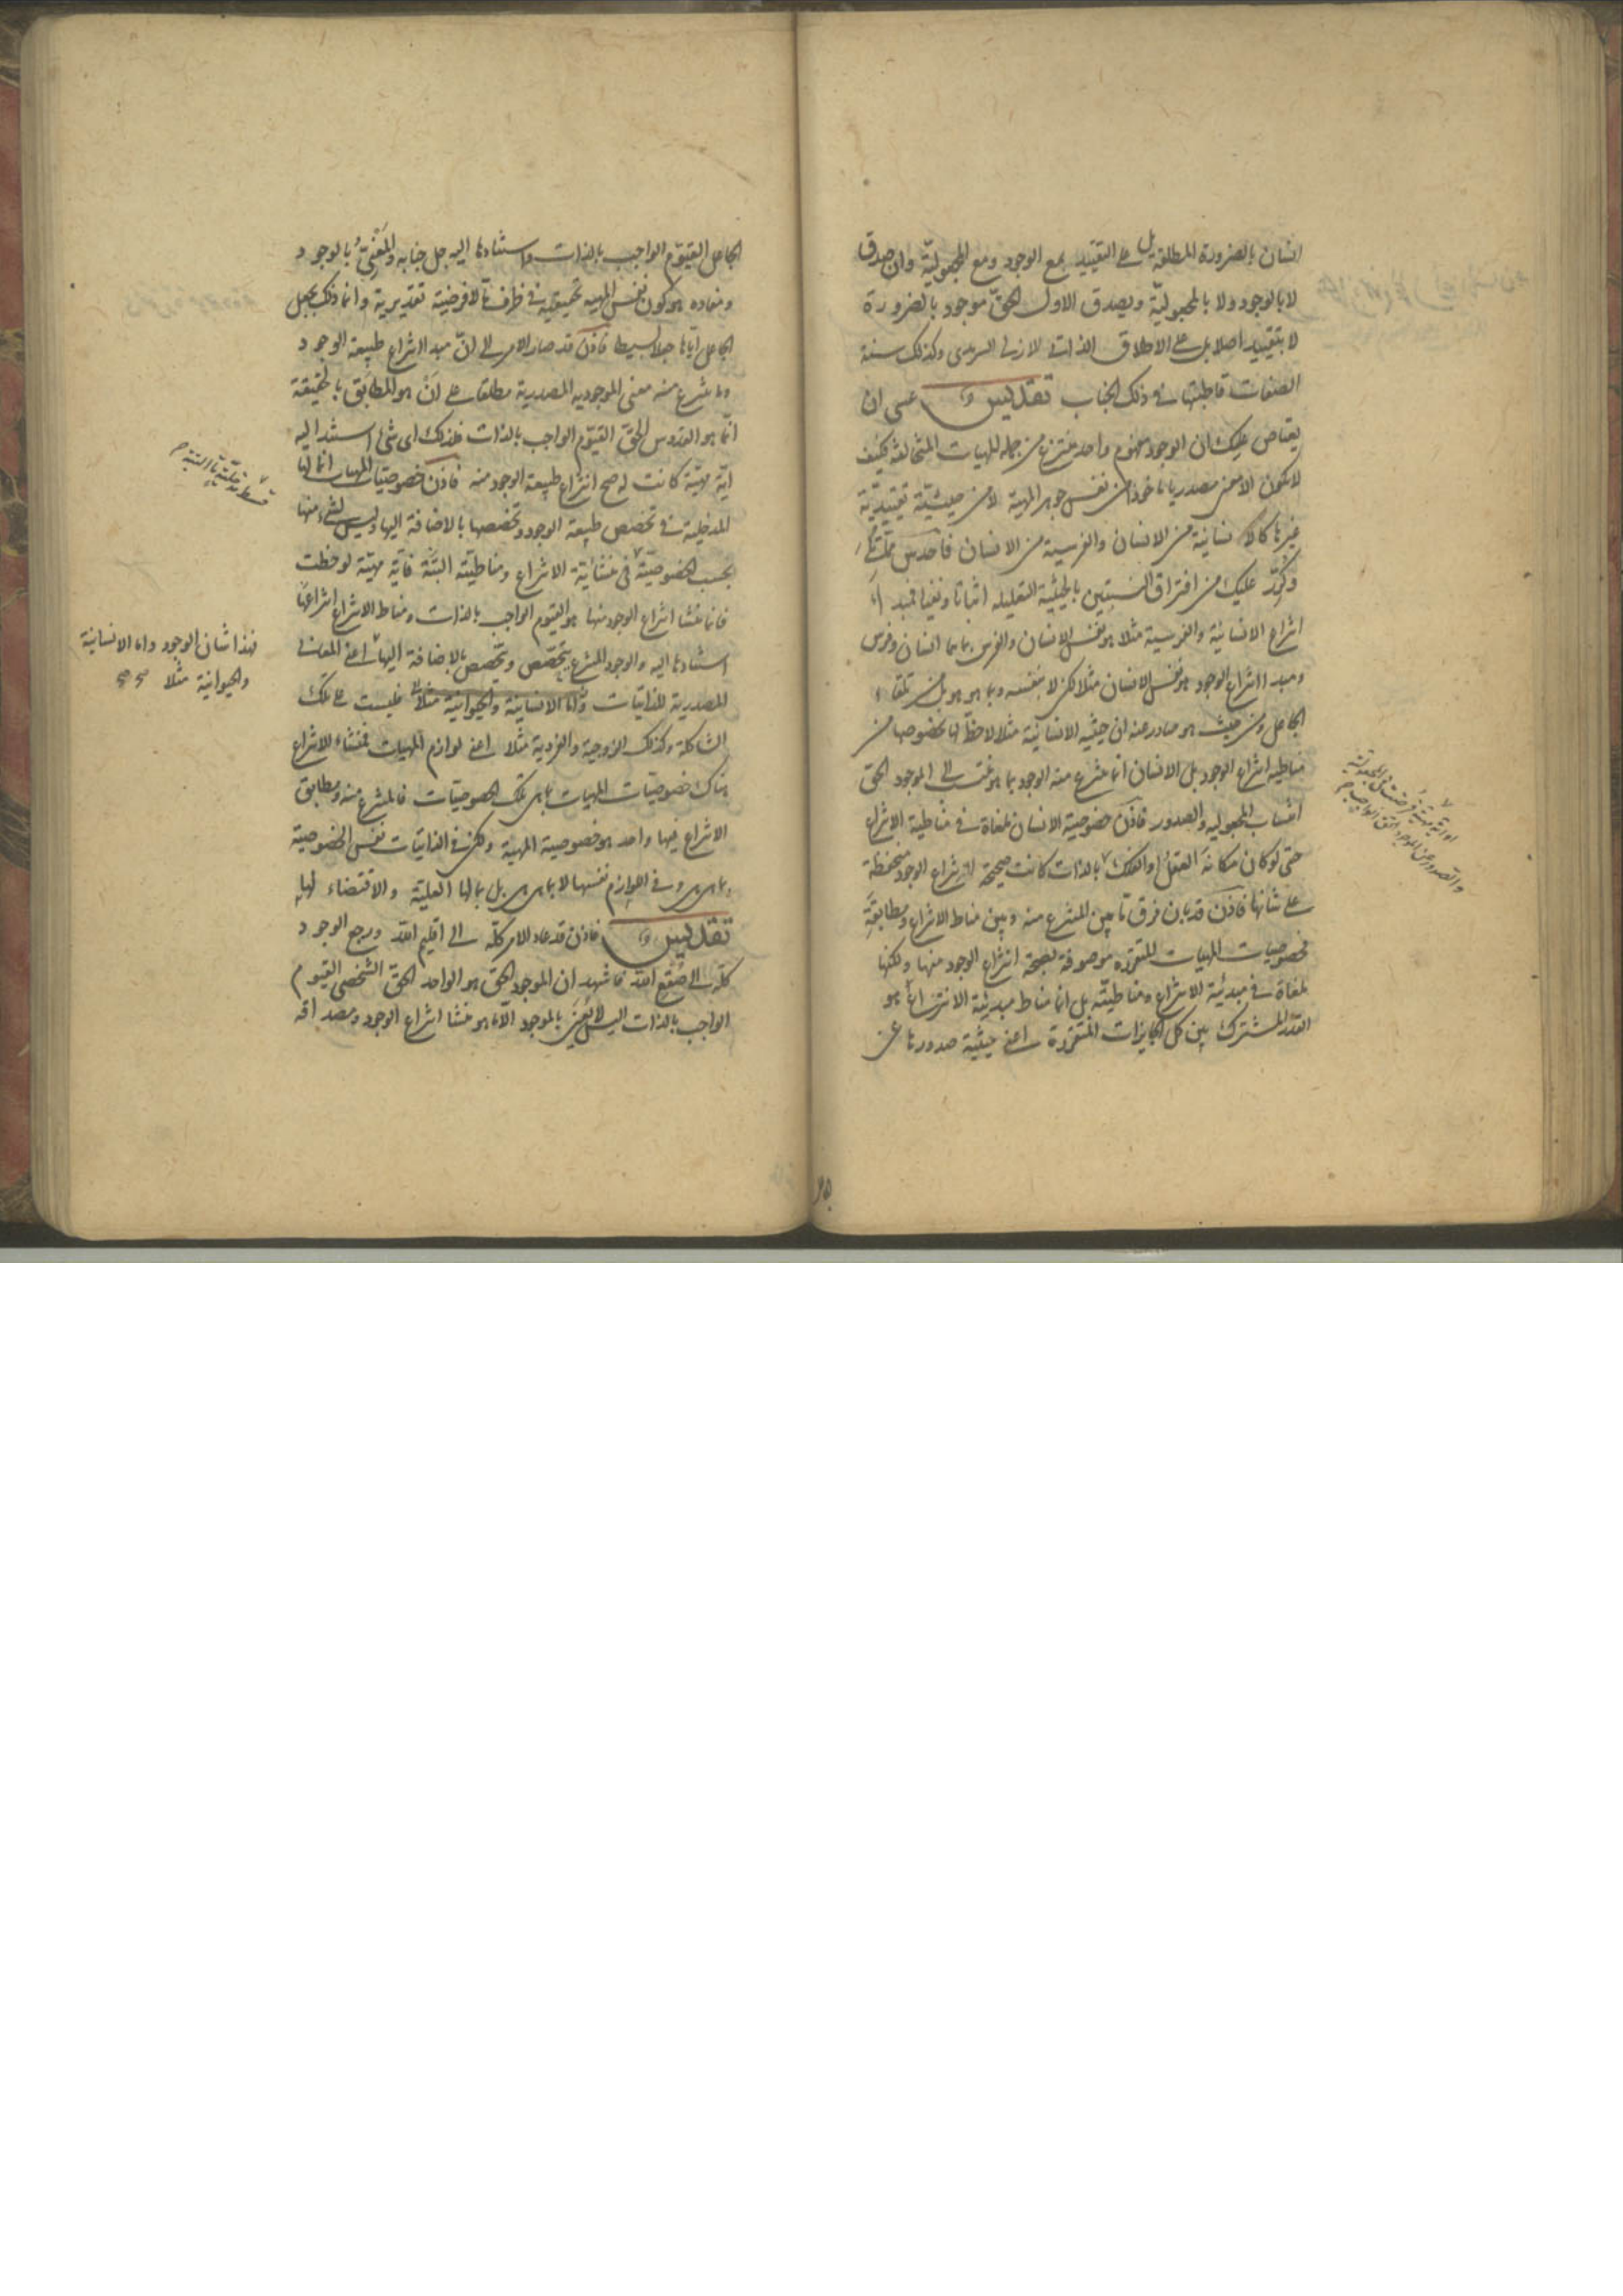 انسان بالضرورة المطلقة بل على التقييد بمع الوجود ومع المجعولية وان صدق
لا بالوجود ولا بالمجعولية ويصدق الاول الحق موجود بالضرورة
لا بتقييد اصلا بل على الاطلاق الذاتى الازلى السرمدى وكذلك سنة
الصفات قاطبتها فى ذلك الجناب تقديس و عسى ان
يعتاص عليك ان الوجود مفهوم واحد منتزع من جملة المهيات المتخالفة فكيف
لا يكون الا معنى مصدريا ماخوذا من نفس جوهر المهية لا من حيثية تقييدية
غيرها كالانسانية من الانسان والفرسية من الانسان فاحدس مما
وكد عليك من افتراق النسبتين بالحيثية التعليلية اثباتا ونفيا فمبدء
انتزاع الانسانية والفرسية مثلا هو نفس الانسان والفرس بما هما انسان وفرس
ومبدء انتزاع الوجود هو نفس الانسان مثلا لكن لا بنفسه وبما هو هو بل من تلقاء
الجاعل ومن حيث هو صادر عنه اى حيثية الانسانية مثلا لا حظ لها بخصوصها من
مناطية انتزاع الوجود بل الانسان انما ينتزع منه الوجود بما هو منتسب الى الموجود الحق
انتساب المجعولية والصدور فاذن خصوصية الانسان ملغاة فى مناطية الانتزاع
حتى لو كان مكانه العقل او الفلك بالذات كانت صحيحة انتزاع الوجود منحفظة
على شانها فاذن قد بان فرق ما بين المنتزع منه وبين مناط الانتزاع ومطابقه
فخصوصيات المهيات المتقررة موصوفة بصحة انتزاع الوجود منها ولكنها
ملغاة فى مبدئية الانتزاع ومناطيته بل انما مناط مبدئية الانتزاع هو
القدر المشترك بين كل الجايزات المتقررة اعنى حيثية صدورها عن
او اية مهية فرضت فى المجعولية
والصدور عن الموجود الحق الواجب
الجاعل القيوم الواجب بالذات واستنادها اليه جل جنابه والمعنى بالوجود
ومفاده هو كون نفس المهية تحقيقية فى ظرف ما لا فرضية تقديرية وانما ذلك بجعل
الجاعل اياها جعلا بسيطا فاذن قد صار الامر الى ان مبدء انتزاع طبيعة الوجود
وما ينتزع منه معنى الموجودية المصدرية مطلقا على انه هو المطابق بالحقيقة
انما هو القدوس الحق القيوم الواجب بالذات فلذلك اى شئ استند اليه
اية مهية كانت له صح انتزاع طبيعة الوجود منه فاذن خصوصيات المهيات انما لها
المدخلية فى تخصص طبيعة الوجود وتخصصها بالاضافة اليها وليس لشئ منها
بحسب الخصوصية فى منشائية الانتزاع ومناطيته البتة فاية مهية لوحظت
فانما منشا انتزاع الوجود منها هو القيوم الواجب بالذات ومناط الانتزاع انتزاعها
استنادها اليه والوجود المنتزع يتخصص وتخصص بالاضافة اليها اعنى المعانى
المصدرية للذاتيات واما الانسانية والحيوانية مثلا فليست على تلك
الشاكلة وكذلك الزوجية والفردية مثلا اعنى لوازم المهيات فمنشاء الانتزاع
هناك خصوصيات المهيات بما هى تلك الخصوصيات فالمنتزع منه ومطابق
الانتزاع فيها واحد هو خصوصية المهية ولكن فى الذاتيات نفس الخصوصية
بما هى هى وفى اللوازم نفسها لا بما هى هى بل بما لها العلية والاقتضاء لها
تقديس و فاذن قد عاد الامر كله الى اقليم الله ورجع الوجود
كله الى صقع الله فاشهد ان الموجود الحق هو الواحد الحق الشخصى القيوم
الواجب بالذات اليس لا يعنى بالموجود الا ما هو منشا انتزاع الوجود ومصداقه
فهذا شان الوجود واما الانسانية
والحيوانية مثلا